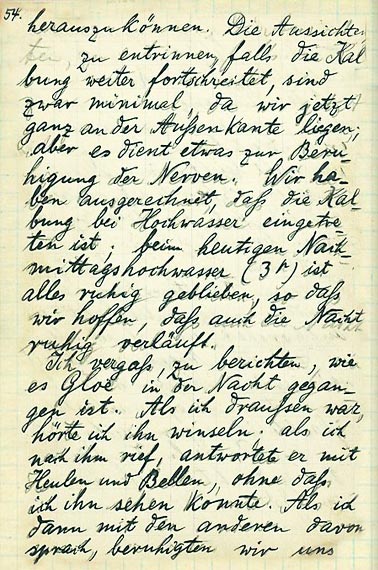 54.
herauszukönnen. Die Aussichten
zu entrinnen, falls die Kal-
bung weiter fortschreitet, sind
zwar minimal, da wir jetzt
ganz an der Außenkante liegen;
aber es dient etwas zur Beru-
higung der Nerven. Wir ha-
ben ausgerechnet, daß die Kal-
bung bei Hochwasser eingetre-
ten ist; beim heutigen Nach-
mittagshochwasser (3h) ist
alles ruhig geblieben, so daß
wir hoffen, daß auch die Nacht
ruhig verläuft.
Ich vergaß, zu berichten, wie
es Gloë in der Nacht gegan-
gen ist. Als ich draußen war,
hörte ich ihn winseln; als ich
nach ihm rief, antwortete er mit
Heulen und Bellen, ohne daß
ich ihn sehen konnte. Als ich
dann mit den anderen davon
sprach, beruhigten wir uns